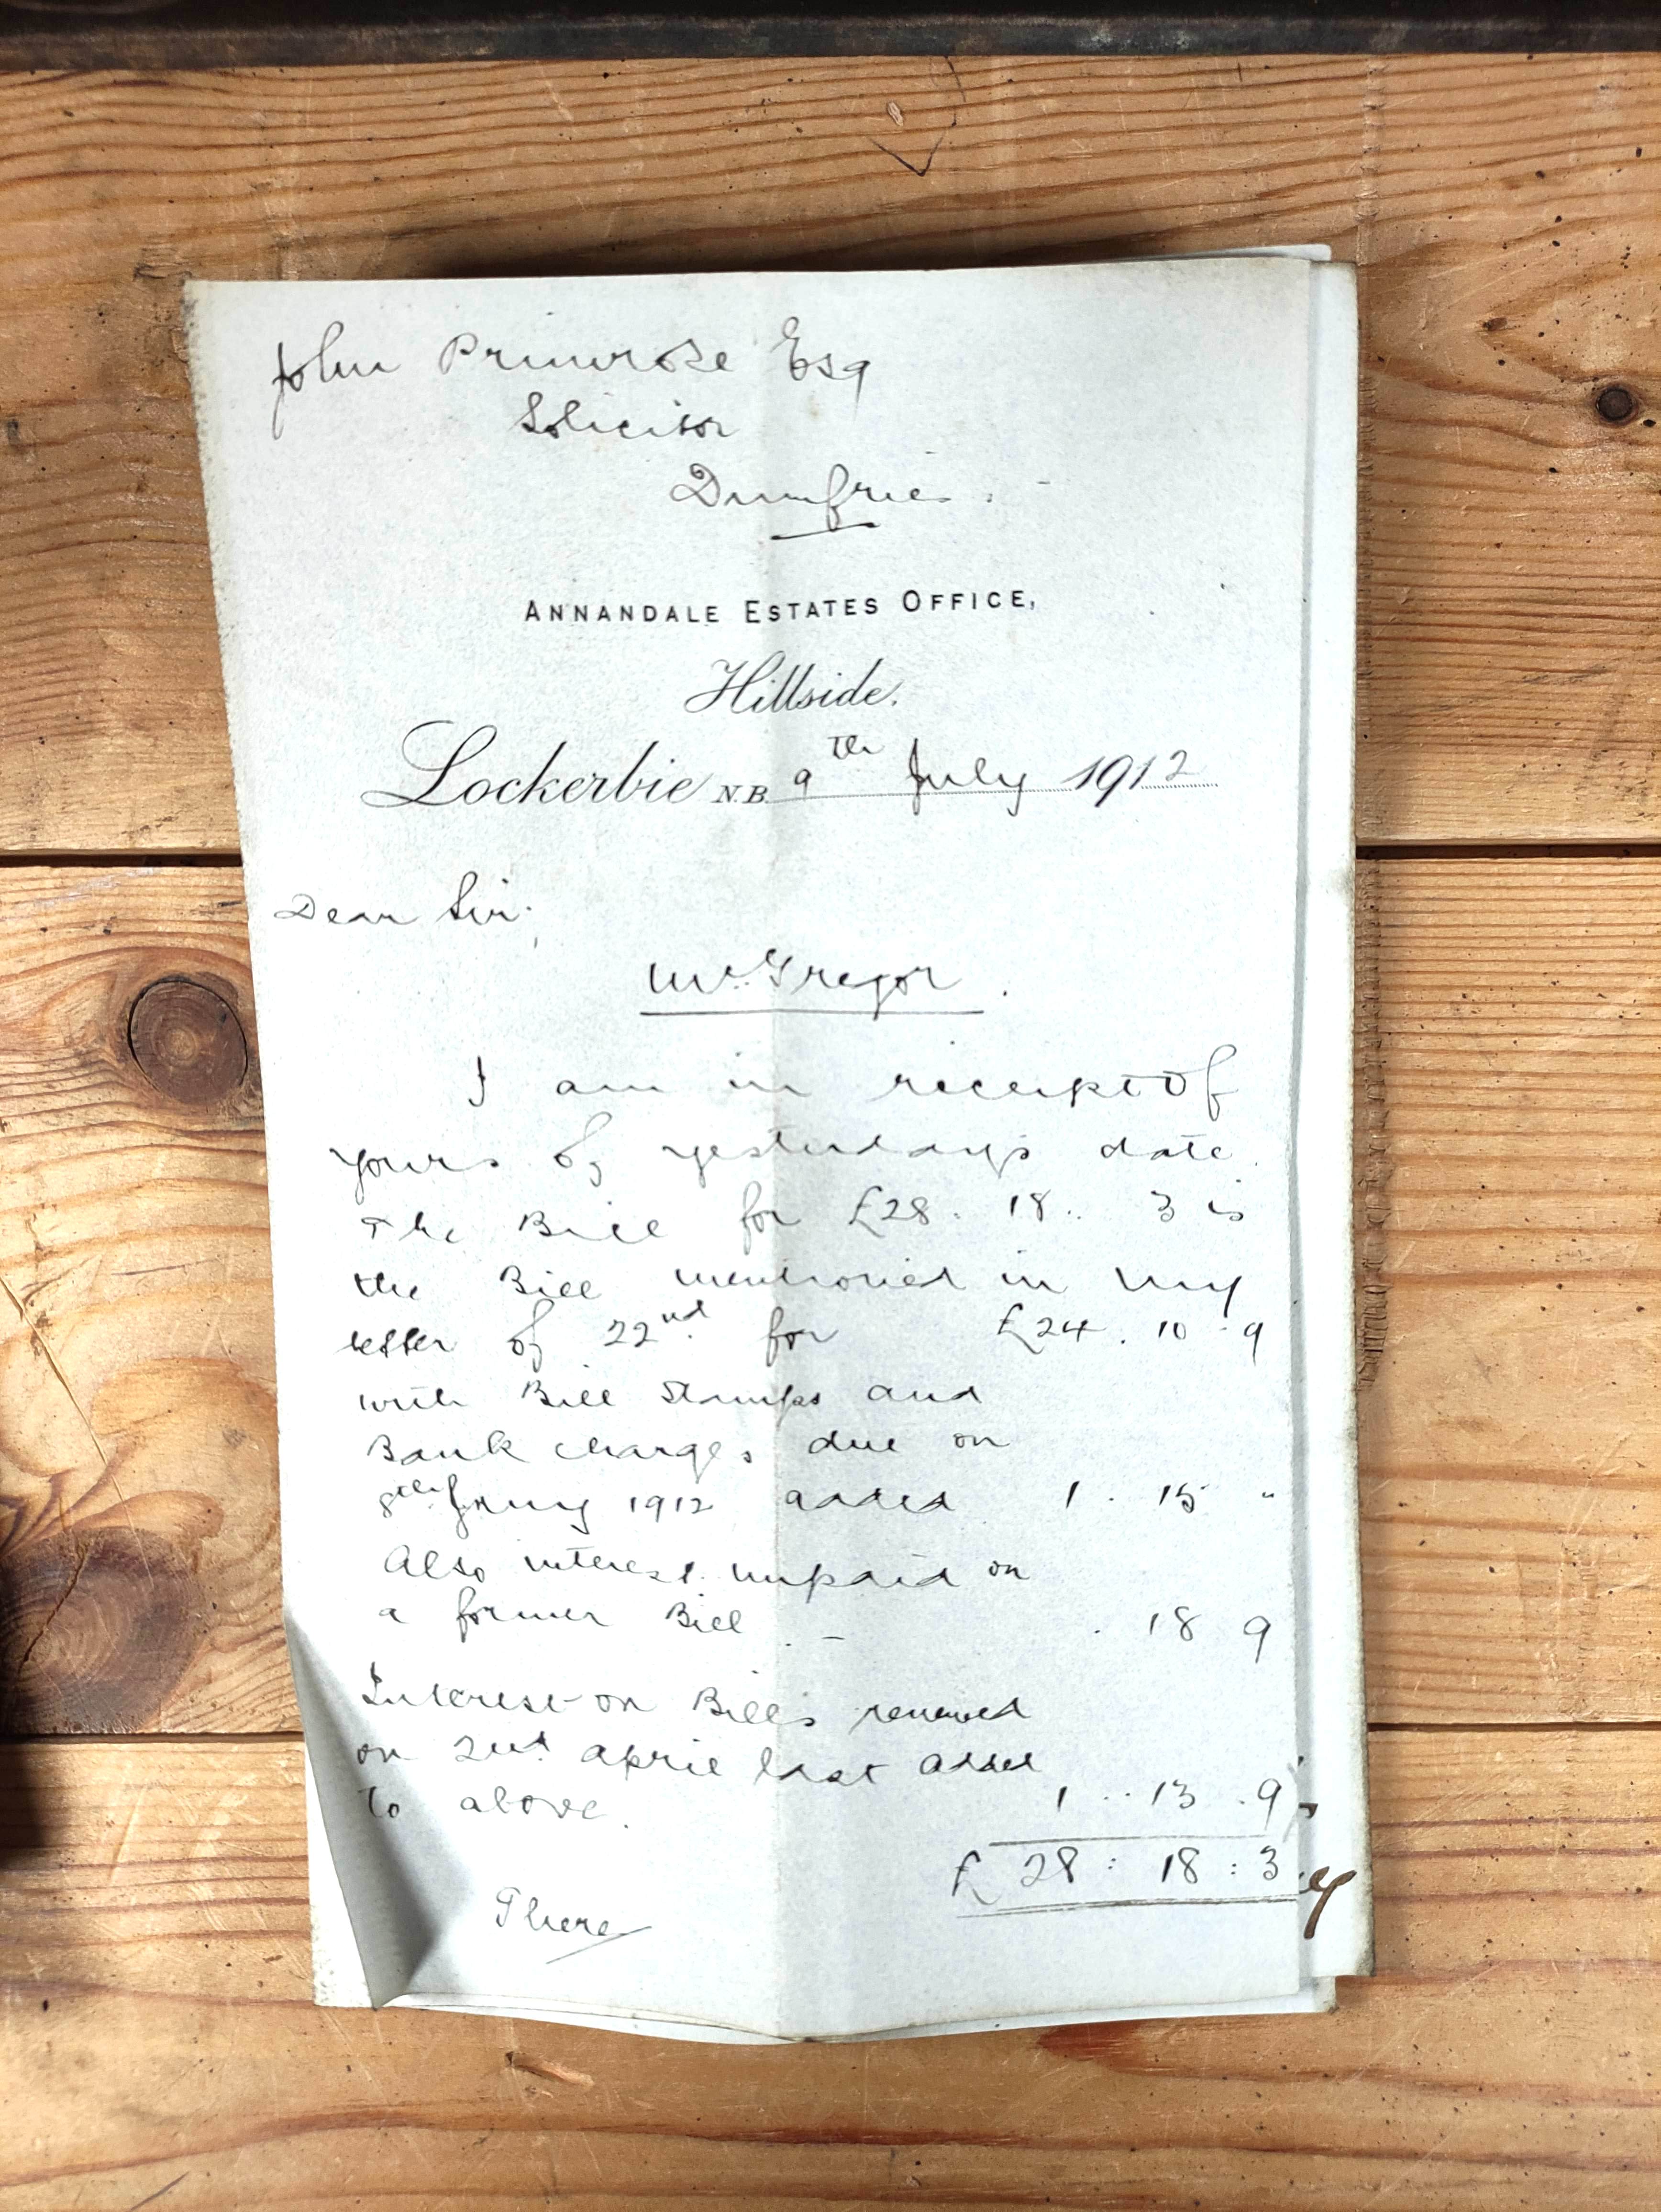 John Primrose Esq
Solicitor
Dumfries.
ANNANDALE ESTATES OFFICE,
Hillside.
Lockerbie N.B. 9th July 1912
Dear Sir,
McGregor.
I am in receipt of
yours of yesterday's date.
The Bill for £28. 18. 3 is
the Bill mentioned in my
letter of 22nd for £24. 10. 9
with Bill Stamps and
Bank charges due on
8th Jany 1912 added 1. 15 "
Also interest unpaid on
a former Bill . - . 18 9
Interest on Bills renewed
on April last added
to above. 1 .. 13 . 9
£ 28 : 18 : 3
There